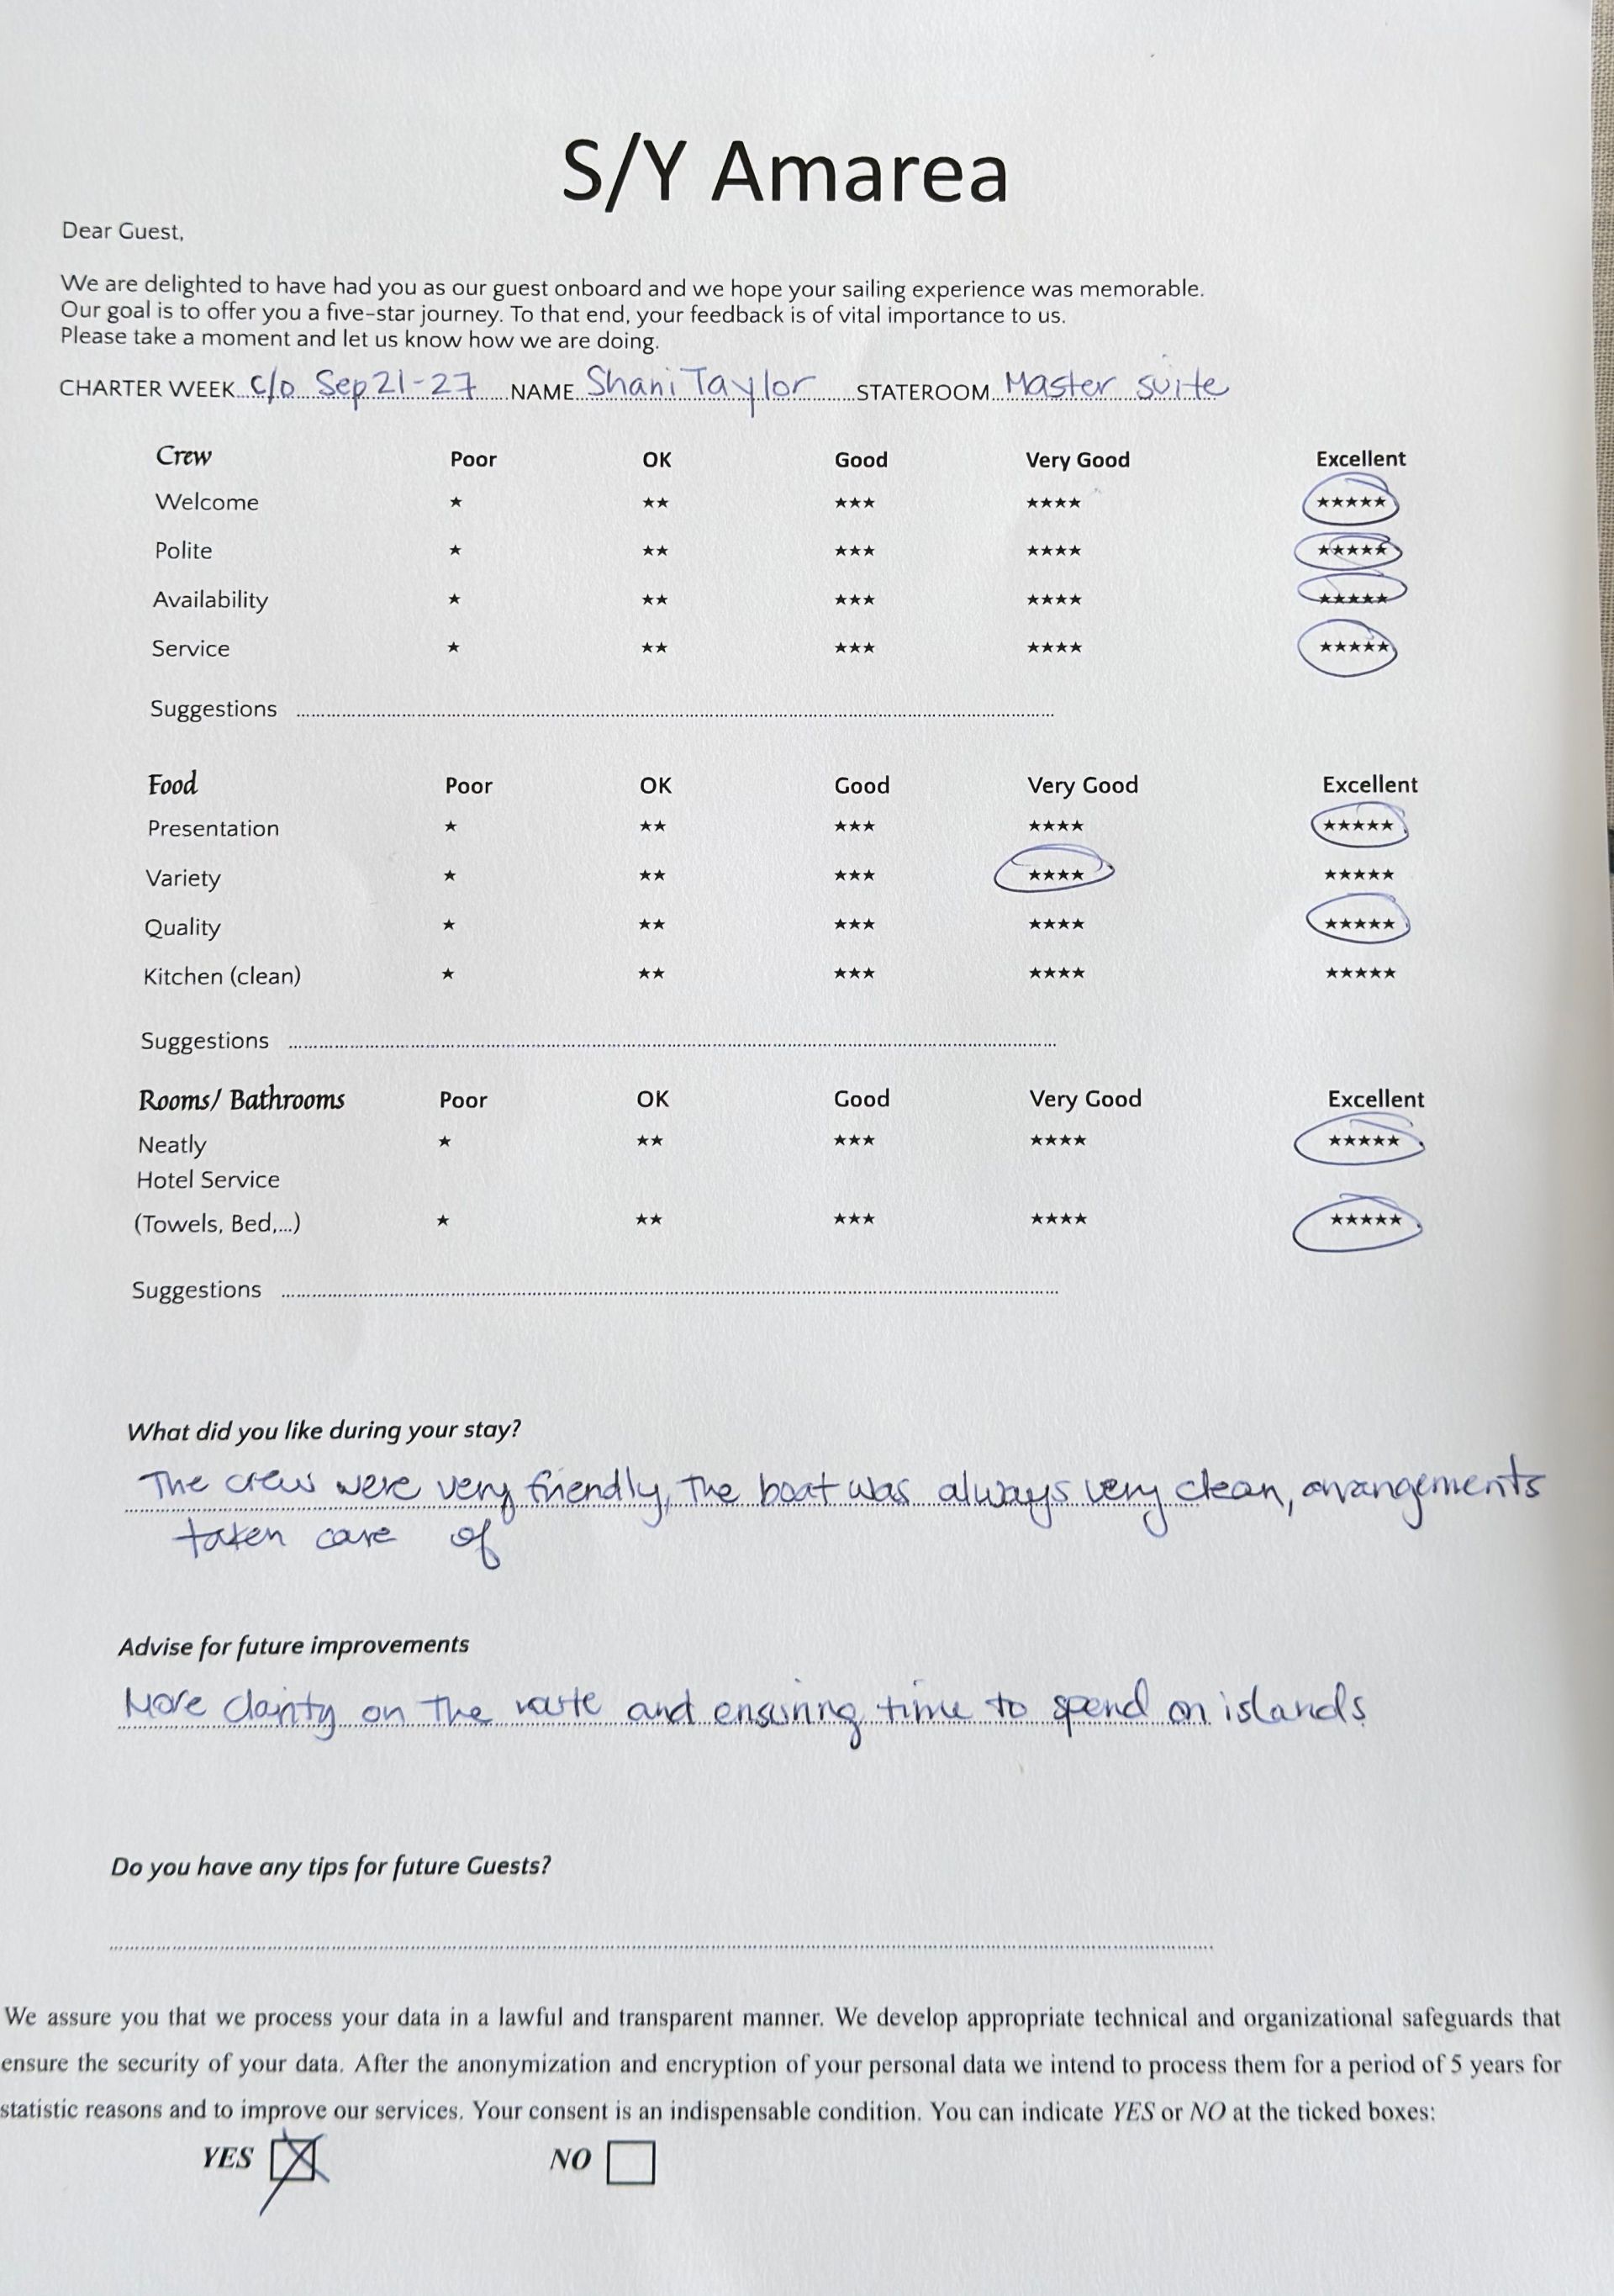 S/Y Amarea
Dear Guest,
We are delighted to have had you as our guest onboard and we hope your sailing experience was memorable.
Our goal is to offer you a five-star journey. To that end, your feedback is of vital importance to us.
Please take a moment and let us know how we are doing.
CHARTER WEEK c/o Sep 21-27 NAME Shani Taylor STATEROOM Master suite
Crew Poor OK Good Very Good Excellent
Welcome ★ ★★ ★★★ ★★★★ ★★★★★
Polite ★ ★★ ★★★ ★★★★ ★★★★★
Availability ★ ★★ ★★★ ★★★★ ★★★★★
Service ★ ★★ ★★★ ★★★★ ★★★★★
Suggestions
Food Poor OK Good Very Good Excellent
Presentation ★ ★★ ★★★ ★★★★ ★★★★★
Variety ★ ★★ ★★★ ★★★★ ★★★★★
Quality ★ ★★ ★★★ ★★★★ ★★★★★
Kitchen (clean) ★ ★★ ★★★ ★★★★ ★★★★★
Suggestions
Rooms/ Bathrooms Poor OK Good Very Good Excellent
Neatly ★ ★★ ★★★ ★★★★ ★★★★★
Hotel Service
(Towels, Bed,...) ★ ★★ ★★★ ★★★★ ★★★★★
Suggestions
What did you like during your stay?
The crew were very friendly, The boat was always very clean, arrangements
taken care of
Advise for future improvements
More clarity on the route and ensuring time to spend on islands
Do you have any tips for future Guests?
We assure you that we process your data in a lawful and transparent manner. We develop appropriate technical and organizational safeguards that
ensure the security of your data. After the anonymization and encryption of your personal data we intend to process them for a period of 5 years for
statistic reasons and to improve our services. Your consent is an indispensable condition. You can indicate YES or NO at the ticked boxes:
YES NO